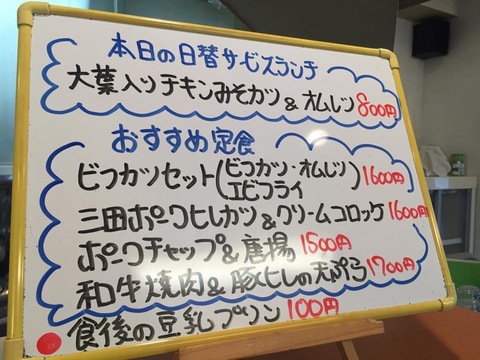 本日の日替サービスランチ
大葉入りチキンみそカツ&オムレツ 800円
おすすめ定食
ビフカツセット(ビフカツ・オムレツ エビフライ) 1600円
三田ポークヒレカツ&クリームコロッケ 1600円
ポークチャップ&唐揚 1500円
和牛焼肉&豚ヒレの天ぷら 1700円
●食後の豆乳プリン 100円